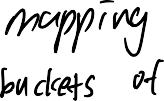 mapping
buckets of